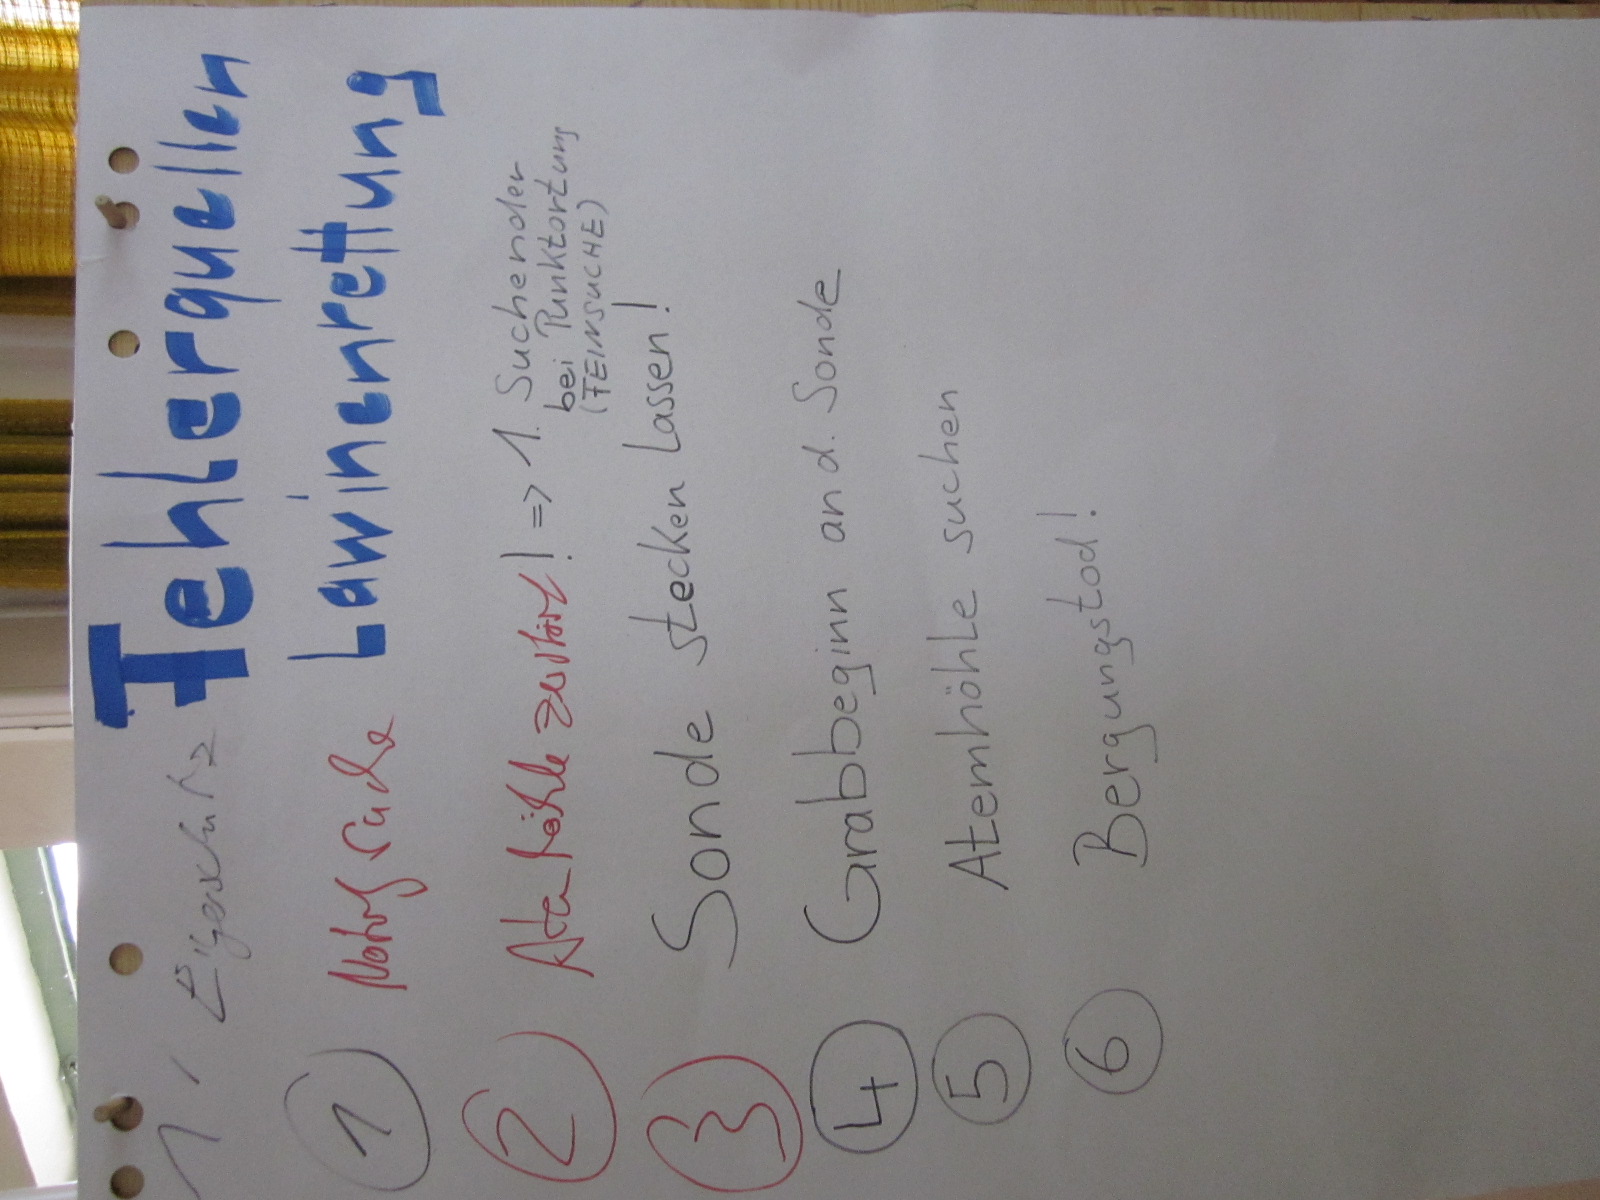 Fehlerquellen
Lawinenrettung
1. Eigenschutz
1 Notrufsuche
2 Atemhöhle zerstört! => 1. Suchender
bei Punktortung
(FEINSUCHE)
3 Sonde stecken Lassen!
4 Grabbeginn and. Sonde
5 Atemhöhle suchen
6 Bergungstod!